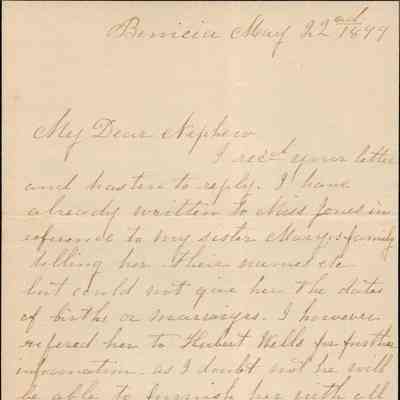 Benicia May 22nd 1899
My Dear Nephew
I recd your letter
and hasten to reply. I have
already written to Miss Jones in
reference to my sister Mary's family
telling her their names etc
but could not give her the dates
of births or marriages. I however
refered her to Hubert Wells for further
information. as I doubt not he will
be able to furnish her with all